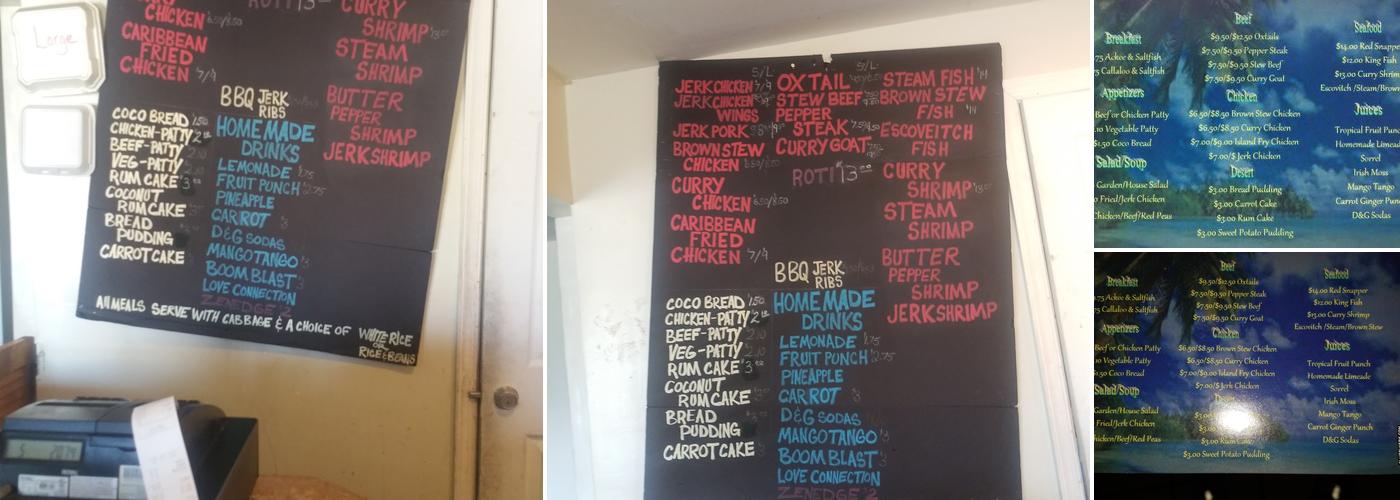 Large
ROTI 13
CURRY
CHICKEN 6.50/8.50
SHRIMP
CARIBBEAN
FRIED
CHICKEN 7/9
STEAM
SHRIMP
BBQ JERK
RIBS
BUTTER
PEPPER
SHRIMP
JERK SHRIMP
COCO BREAD 1.50
CHICKEN-PATTY 2
BEEF-PATTY
VEG-PATTY
RUM CAKE 3
COCONUT
RUM CAKE
BREAD
PUDDING
CARROT CAKE
HOME MADE
DRINKS
LEMONADE
FRUIT PUNCH 2.75
PINEAPPLE
CARROT 3
D&G SODAS
MANGO TANGO
BOOM BLAST 3
LOVE CONNECTION
ZENEDGE 2
All MEALS SERVE WITH CABBAGE & A CHOICE OF WHITE RICE
OR
RICE & BEANS
S/L
JERK CHICKEN 7/9
JERK CHICKEN
WINGS
JERK PORK
BROWN STEW
CHICKEN 6.50/8.50
CURRY
CHICKEN 6.50/8.50
CARIBBEAN
FRIED
CHICKEN 7/9
S/L
OX TAIL
STEW BEEF
PEPPER
STEAK 7.50/9.50
CURRY GOAT
ROTI 13
STEAM FISH 14
BROWN STEW
FISH 14
ESCOVEITCH
FISH
CURRY
SHRIMP 13
STEAM
SHRIMP
BUTTER
PEPPER
SHRIMP
JERK SHRIMP
BBQ JERK
RIBS
COCO BREAD 1.50
CHICKEN-PATTY 2
BEEF-PATTY
VEG-PATTY 2.10
RUM CAKE 3
COCONUT
RUM CAKE
BREAD
PUDDING
CARROT CAKE 3
HOME MADE
DRINKS
LEMONADE 1.75
FRUIT PUNCH 2.75
PINEAPPLE
CARROT 3
D&G SODAS
MANGO TANGO 3
BOOM BLAST 3
LOVE CONNECTION
ZENEDGE 2
Breakfast
.75 Ackee & Saltfish
5 Callaloo & Saltfish
Appetizers
Beef or Chicken Patty
.10 Vegetable Patty
$1.50 Coco Bread
Salad/Soup
Garden/House Salad
o Fried/Jerk Chicken
Chicken/Beef/Red Peas
Beef
$9.50/$12.50 Oxtails
$7.50/$9.50 Pepper Steak
$7.50/$9.50 Stew Beef
$7.50/$9.50 Curry Goat
Chicken
$6.50/$8.50 Brown Stew Chicken
$6.50/$8.50 Curry Chicken
$7.00/$9.00 Island Fry Chicken
$7.00/$ Jerk Chicken
Desert
$3.00 Bread Pudding
$3.00 Carrot Cake
$3.00 Rum Cake
$3.00 Sweet Potato Pudding
Seafood
$14.00 Red Snappe
$12.00 King Fish
$13.00 Curry Shrim
Escovitch /Steam/Brown
Juices
Tropical Fruit Pun
Homemade Limead
Sorrel
Irish Moss
Mango Tango
Carrot Ginger Pun
D&G Sodas
Breakfast
.75 Ackee & Saltfish
5 Callaloo & Saltfish
Appetizers
Beef or Chicken Patty
10 Vegetable Patty
1.50 Coco Bread
Salad/Soup
Garden/House Salad
Fried/Jerk Chicken
hicken/Beef/Red Peas
Beef
$9.50/$12.50 Oxtails
$7.50/$9.50 Pepper Steak
$7.50/$9.50 Stew Beef
$7.50/$9.50 Curry Goat
Chicken
$6.50/$8.50 Brown Stew Chicken
$6.50/$8.50 Curry Chicken
$7.00/$9.00 Island Fry Chicken
$7.00/$ Jerk Chicken
$3.00 Rum Cake
$3.00 Sweet Potato Pudding
Seafood
$14.00 Red Snapper
$12.00 King Fish
$13.00 Curry Shrimp
Escovitch /Steam/Brown Stew
Juices
Tropical Fruit Punch
Homemade Limeade
Sorrel
Irish Moss
Mango Tango
Carrot Ginger Punch
D&G Sodas